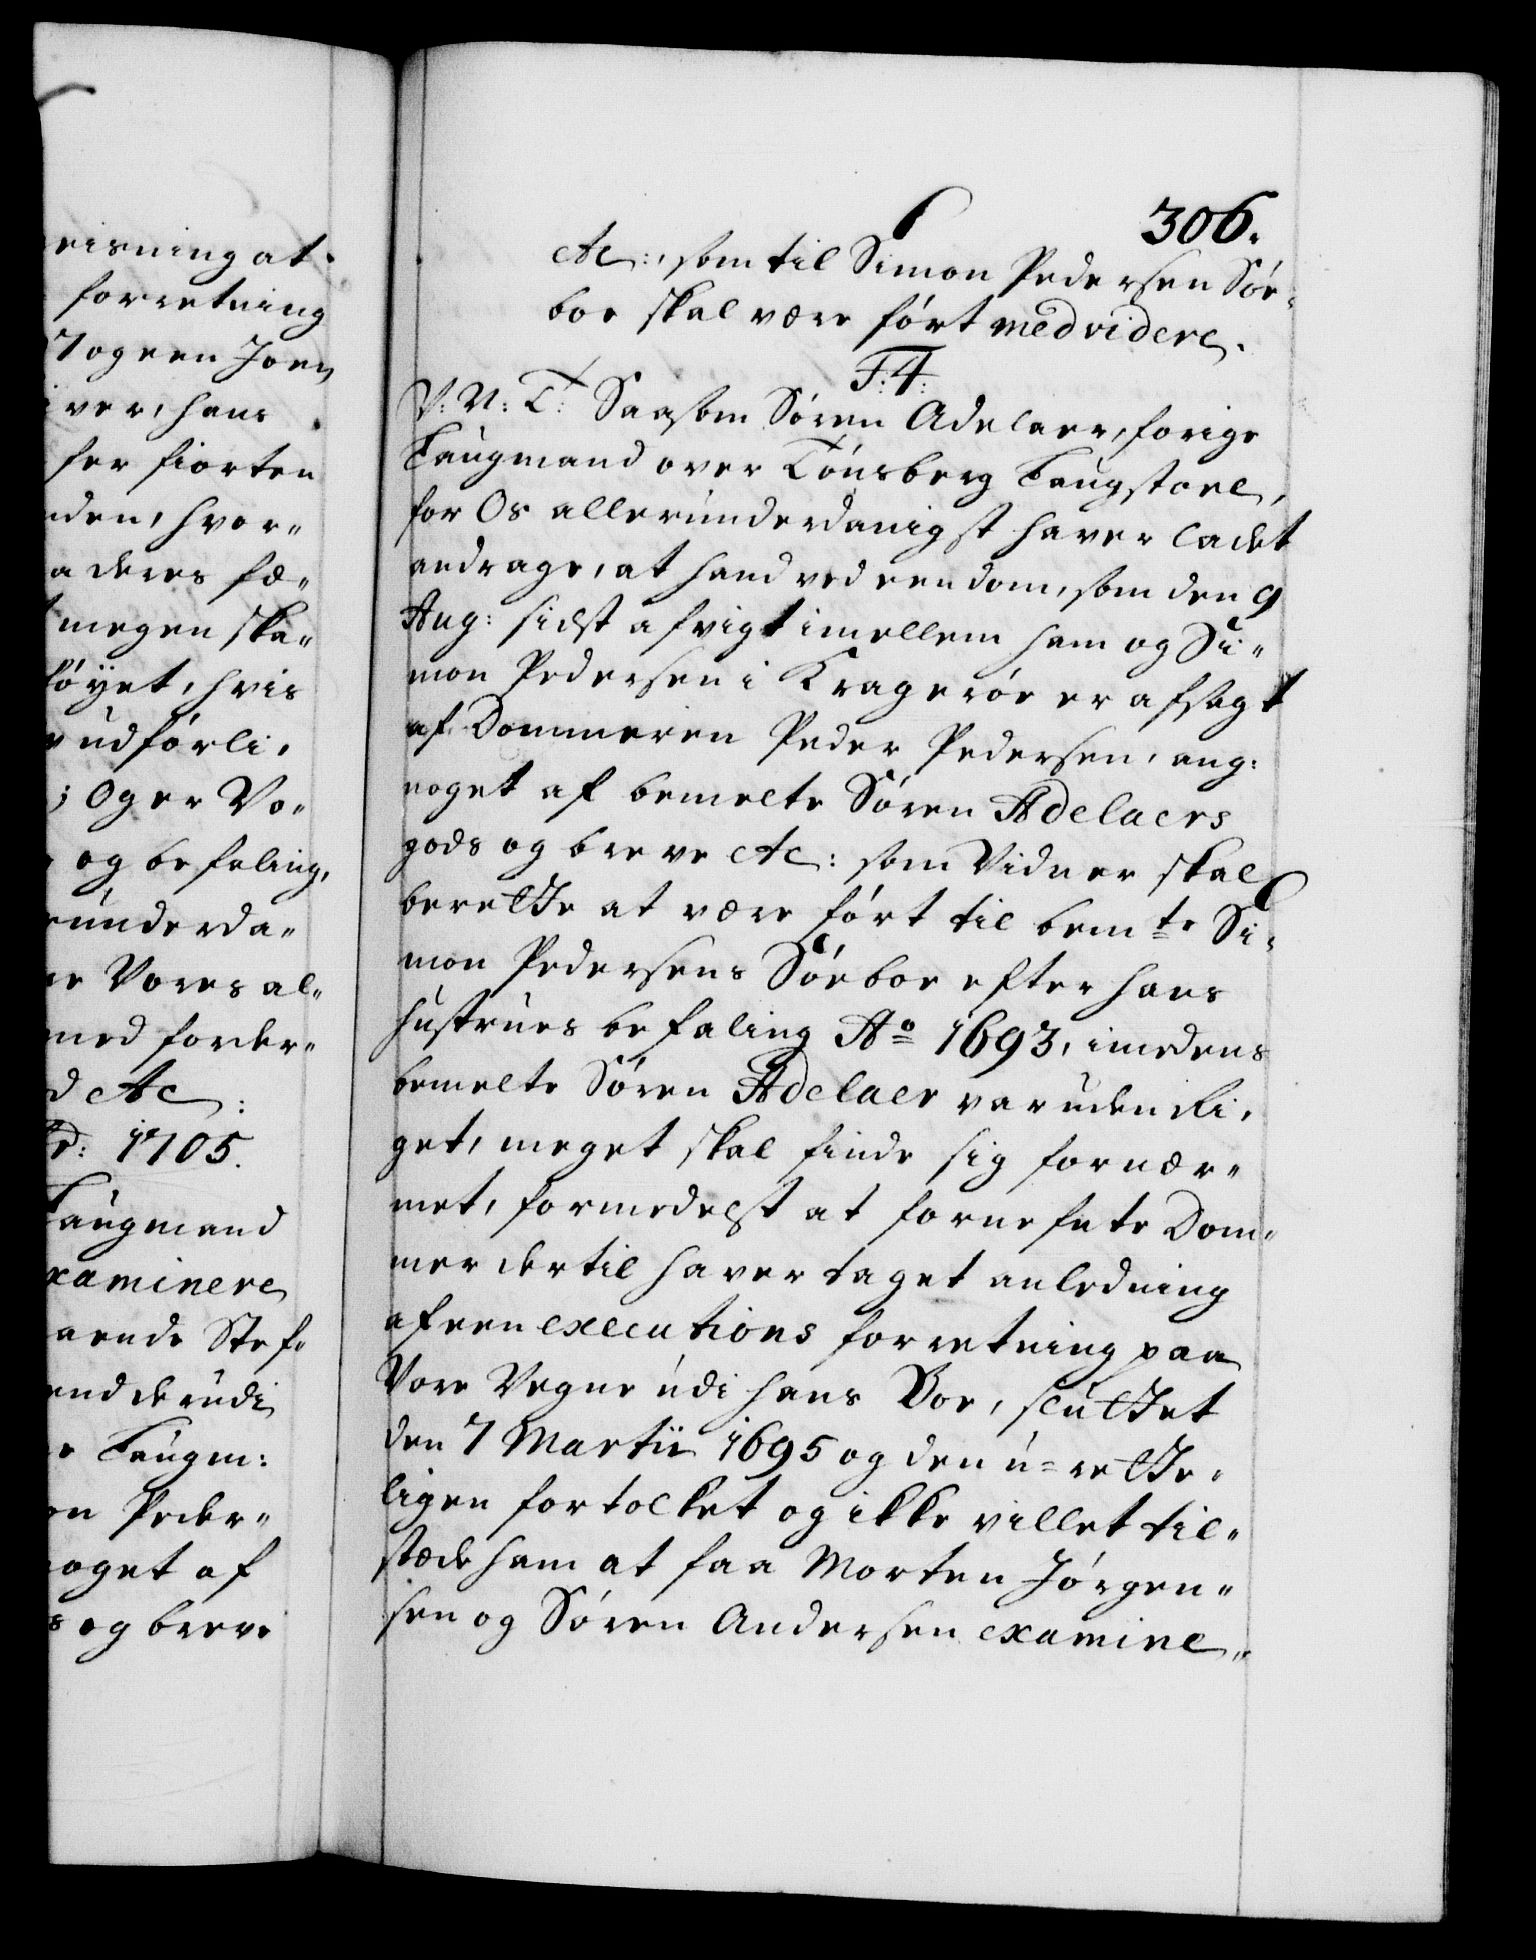 eisning at
forretning
7 og een Joen
iver, hans
ser fiorten
nden, hvor„
a deres fæ„
megen ska„
löyet, hvis
udförli„
; Og er Vo„
og befaling,
runderda„
re Vores al„
med forder„
d &c:
d: 1705.
Laugmand
xaminere
aende Stef„
end derudi
e Laugm:
on Peder„
noget af
s og breve
306.
&c:, som til Simon Pedersen Söe„
boe skal være fört med videre.
F:4:
V: V: T: Saasom Sören Adelaer, forige
Laugmand over Tönsberg Laugstoel,
for Os allerunderdanigst haver ladet
andrage, at hand ved een dom, som den 9
Aug: sidst afvigt imellem ham og Si„
mon Pedersen i Krageröe er afsagt
af Dommeren Peder Pedersen, ang:
noget af bemelte Sören Adelaers
gods og breve &c: som Vidner skal
berette at være fört til bemte Si„
mon Pedersens Söeboe efter hans
hustrues befaling Ao 1693, imedens
bemelte Sören Adelaer var uden Ri„
get, meget skal finde sig fornær„
met, formedelst at fornefnte Dom„
mer dertil haver taget anledning
af een executions forretning paa
Vore Vegne udi hans Boe, sluttet
den 7 Martii 1695 og den u-rette„
ligen fortolket og ikke villet til„
stæde ham at faa Morten Jörgen„
sen og Sören Andersen examine„